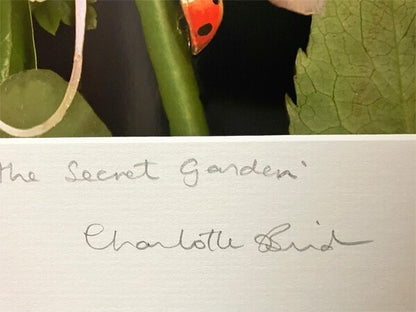 the Secret Garden'
Charlotte Bird